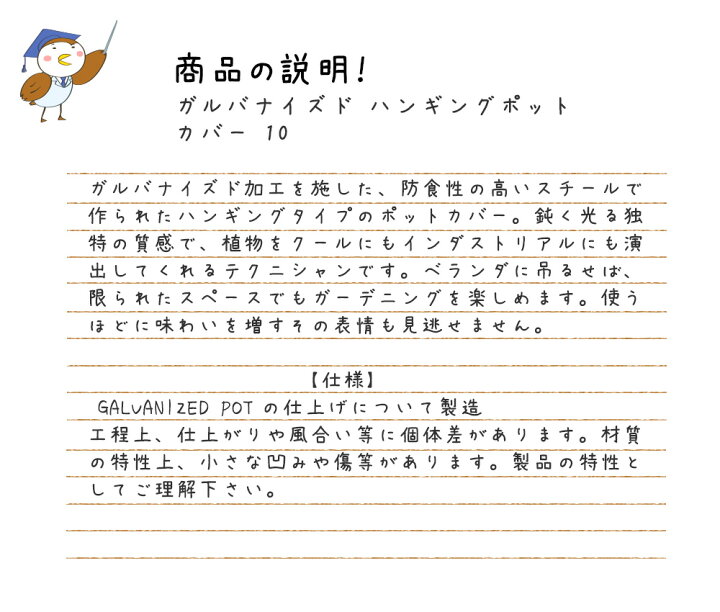 商品の説明!
ガルバナイズド ハンギングポット
カバー 10
ガルバナイズド加工を施した、防食性の高いスチールで
作られたハンギングタイプのポットカバー。鈍く光る独
特の質感で、植物をクールにもインダストリアルにも演
出してくれるテクニシャンです。ベランダに吊るせば、
限られたスペースでもガーデニングを楽しめます。使う
ほどに味わいを増すその表情も見逃せません。
【仕様】
GALVANIZED POT の仕上げについて製造
工程上、仕上がりや風合い等に個体差があります。材質
の特性上、小さな凹みや傷等があります。製品の特性と
してご理解下さい。